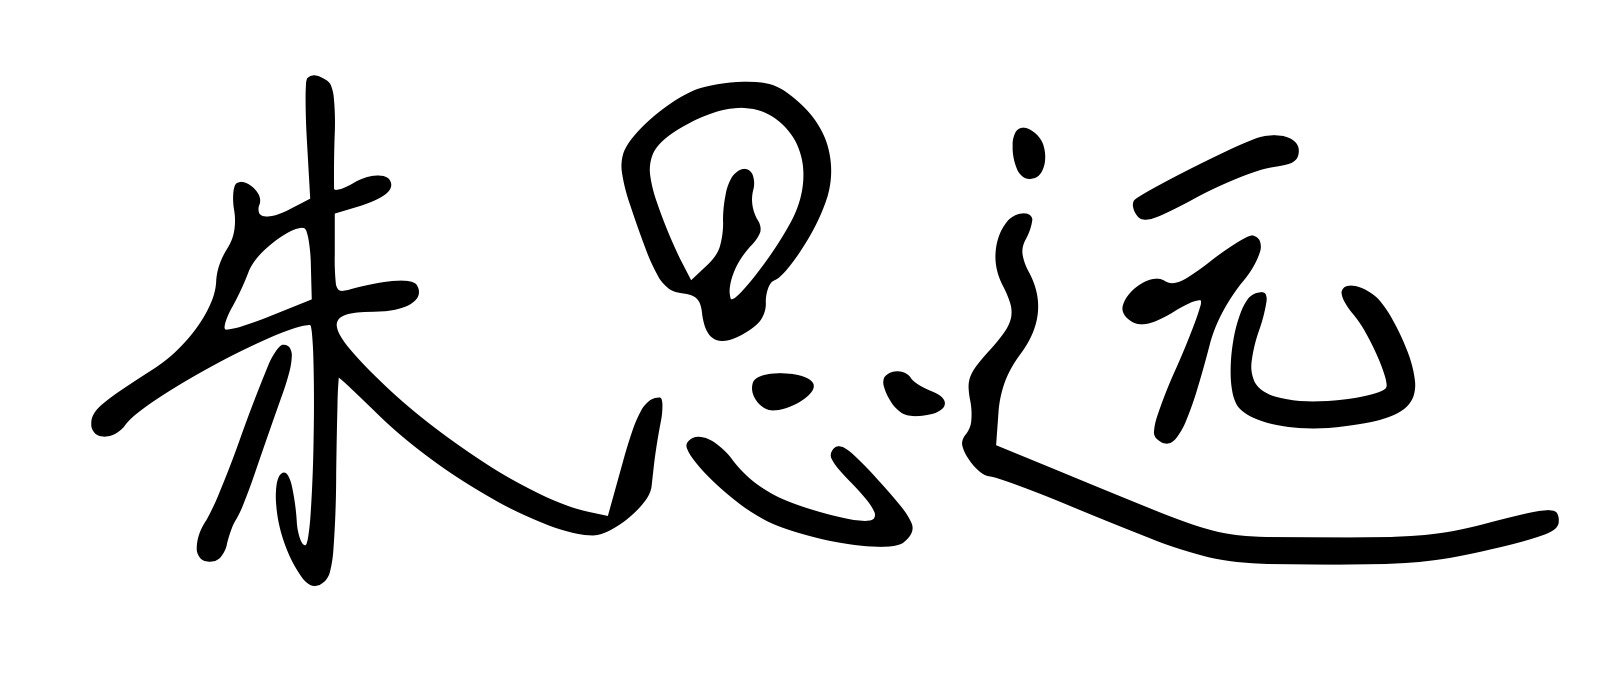 朱思远